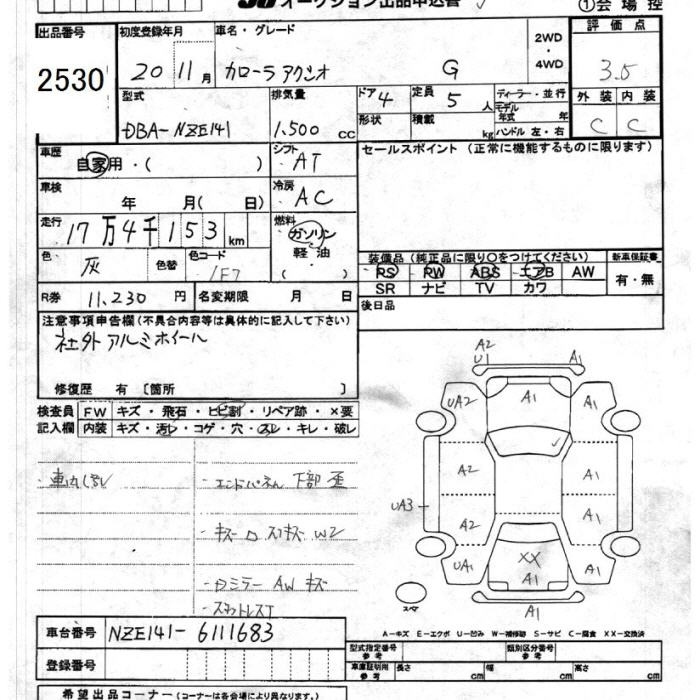 オークション出品申込書 ①会場控
出品番号 初度登録年月 車名・グレード 2WD・4WD 評価点
2530 20 11月 カローラアクシオ G 3.5
型式 排気量 ドア 4 定員 5人 ディーラー・並行
モデル年式 年 外装 内装
DBA-NZE141 1,500cc 形状 積載 kg ハンドル 左・右 C C
車歴 自家用・( ) シフト AT セールスポイント (正常に機能するものに限ります)
車検 年 月( 日) 冷房 AC
走行 17万4千153km 燃料 ガソリン 軽油 ( )
色 灰 色替 色コード 1F7
装備品(純正品に限り○をつけてください) 新車保証書
RS PW ABS エアB AW 有・無
SR ナビ TV カワ
R券 11,230円 名変期限 月 日 後日品
注意事項申告欄(不具合内容等は具体的に記入して下さい)
社外アルミホイール
修復歴 有 [箇所 ]
検査員 FW キズ・飛石・ヒビ割・リペア跡・×要
記入欄 内装 キズ・汚レ・コゲ・穴・スレ・キレ・破レ
・エンドパネル 下部 歪
・キズ W2
・ミラー AW キズ
A2
U1 A1
UA2 A1 A1
A2 A1
UA3
A2 A1
UA1 XX A1 A1
A1
スペア
A-キズ E-エクボ U-凹み W-補修跡 S-サビ C-腐食 XX-交換済
車台番号 NZE141-6111683
登録番号
型式指定番号 参考 類別区分番号 参考
車庫証明用 参考 長さ cm 幅 cm 高さ cm
希望出品コーナー(コーナーは各会場により異なります。)